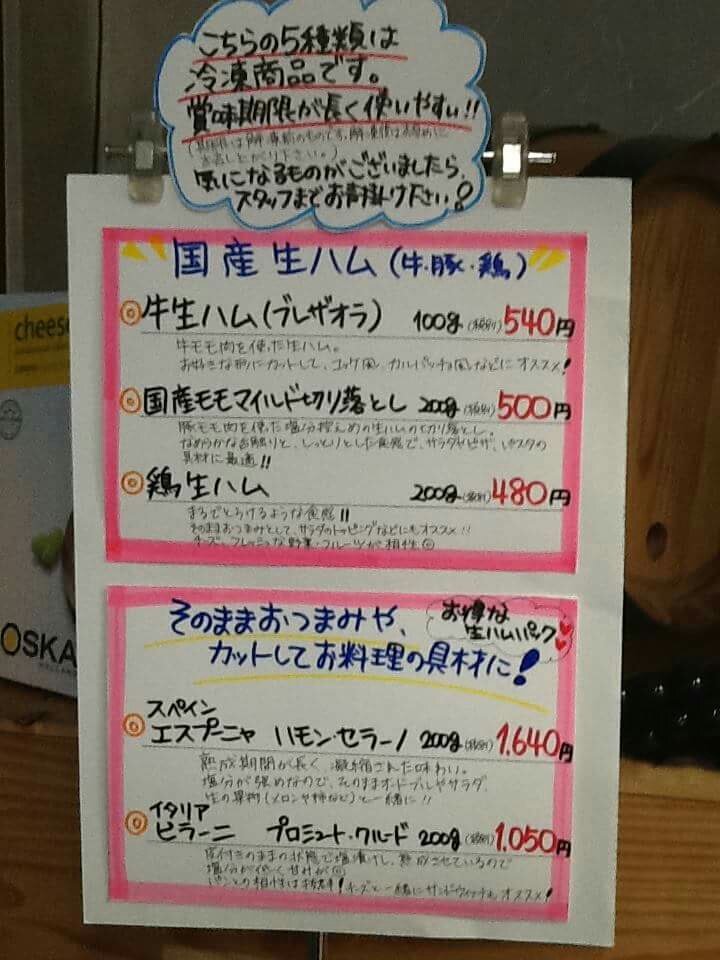 こちらの5種類は
冷凍商品です。
賞味期限が長く使いやすい!!
気になるものがございましたら、
スタッフまでお声掛け下さい!
国産生ハム(牛・豚・鶏)
◎牛生ハム(ブレザオラ) 100g(税別)540円
牛モモ肉を使った生ハム。
お好きな形にカットして、ユッケ風、カルパッチョ風などにオススメ!
◎国産モモマイルド切り落とし 200g(税別)500円
豚モモ肉を使った塩分控えめの生ハムの切り落とし。
なめらかな舌触りと、しっとりとした食感で、サラダやピザ、パスタの
具材に最適!!
◎鶏生ハム 200g(税別)480円
まるでとろけるような食感!!
そのままおつまみとして、サラダのトッピングなどにもオススメ!!
チーズ、フレッシュな野菜・フルーツが相性◎
お得な
生ハムパック
そのままおつまみや、
カットしてお料理の具材に!
スペイン
◎エスプーニャ ハモン・セラーノ 200g(税別)1,640円
熟成期間が長く、凝縮された味わい。
塩分が強めなので、そのままオードブルやサラダ、
生の果物(メロンや柿など)と一緒に!!
イタリア
◎ビラーニ プロシュート・クルード 200g(税別)1,050円
皮付きのままの状態で塩漬けし、熟成させているので
塩分が低く甘みが◎
パンとの相性は抜群!チーズと一緒にサンドウィッチもオススメ!
cheese
OSKA